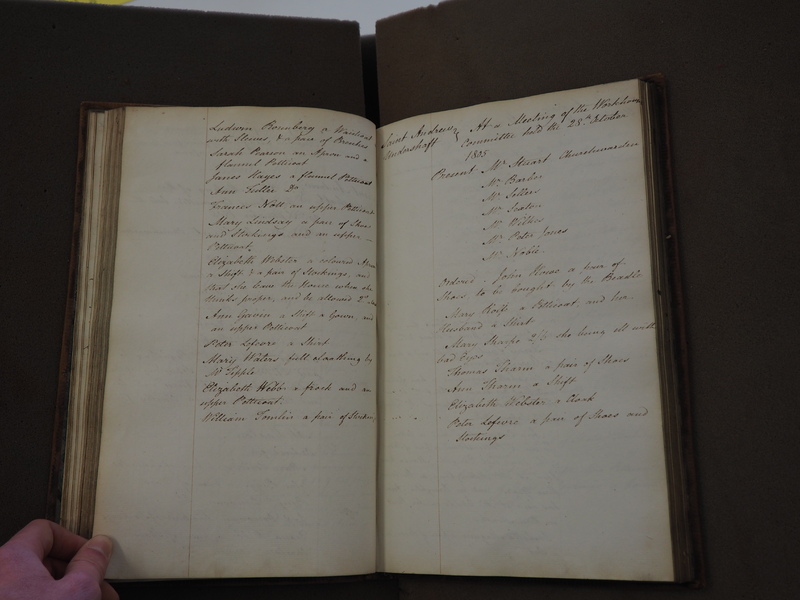 Ludwin Romberg a Waistcoat
with Sleeves, & a pair of Breeches
Sarah Pearson an Apron and a
flannel Petticoat
James Hayes a flannel Petticoat
Ann Fuller Do
Frances Nott an upper Petticoat
Mary Lindsay a pair of Shoes
and Stockings and an upper
Petticoat.
Elizabeth Webster a coloured Apron
a Shift & a pair of Stockings, and
that she leave the House when she
thinks proper, and be allowed
Ann Gavin a Shift a Gown, and
an upper Petticoat
Peter Lefevre a Shirt
Mary Waters full cloathing by
Mr Tipple
Elizabeth Webb a frock and an
upper Petticoat.
William Tomlin a pair of Stockings
Saint Andrew Undershaft } At a Meeting of the Workhouse
Committee held the 28th October
1805
Present Mr Stuart Churchwarden
Mr Barber
Mr Sellers
Mr Seaton
Mr Wilkie
Mr Peter Jones
Mr Noble.
Ordered. John Rowe a pair of
Shoes to be bought by the Beadle
Mary a Petticoat, and her
Husband a Shirt.
Mary Sharpe 2/6 she being ill with
bad Eyes
Thomas Tharm a pair of Shoes
Ann Tharm a Shift
Elizabeth Webster a Cloak
Peter Lefevre a pair of Shoes and
Stockings